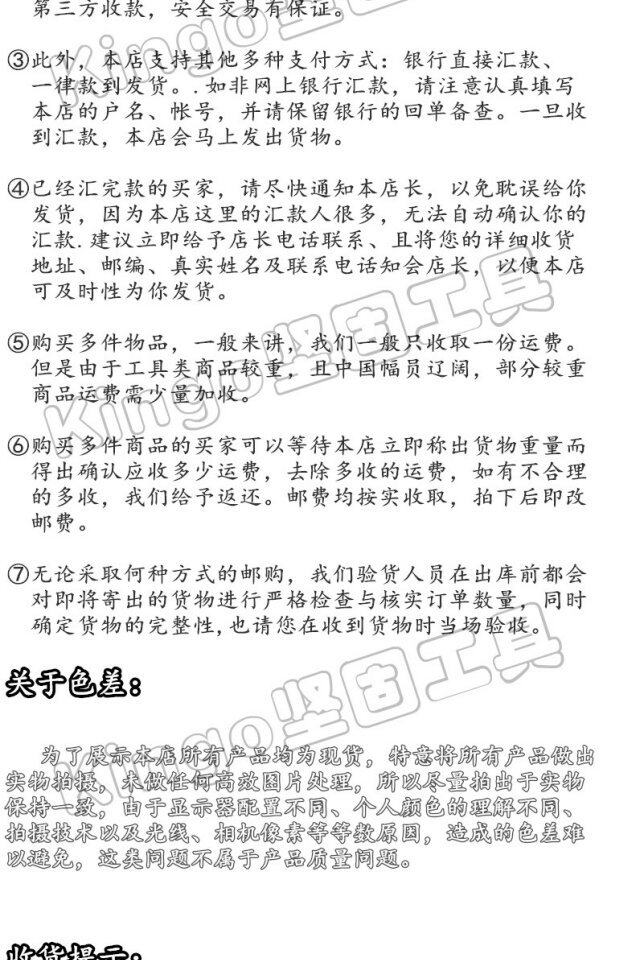 第三方收款，安全交易有保证。
③此外，本店支持其他多种支付方式：银行直接汇款、
一律款到发货。.如非网上银行汇款，请注意认真填写
本店的户名、帐号，并请保留银行的回单备查。一旦收
到汇款，本店会马上发出货物。
④已经汇完款的买家，请尽快通知本店长，以免耽误给你
发货，因为本店这里的汇款人很多，无法自动确认你的
汇款.建议立即给予店长电话联系、且将您的详细收货
地址、邮编、真实姓名及联系电话知会店长，以便本店
可及时性为你发货。
⑤购买多件物品，一般来讲，我们一般只收取一份运费。
但是由于工具类商品较重，且中国幅员辽阔，部分较重
商品运费需少量加收。
⑥购买多件商品的买家可以等待本店立即称出货物重量而
得出确认应收多少运费，去除多收的运费，如有不合理
的多收，我们给予返还。邮费均按实收取，拍下后即改
邮费。
⑦无论采取何种方式的邮购，我们验货人员在出库前都会
对即将寄出的货物进行严格检查与核实订单数量，同时
确定货物的完整性,也请您在收到货物时当场验收。
关于色差：
为了展示本店所有产品均为现货，特意将所有产品做出
实物拍摄，未做任何高效图片处理，所以尽量拍出于实物
保持一致，由于显示器配置不同、个人颜色的理解不同、
拍摄技术以及光线、相机像素等等数原因，造成的色差难
以避免，这类问题不属于产品质量问题。
收货提示：
Kingo坚固工具
Kingo坚固工具
Kingo坚固工具